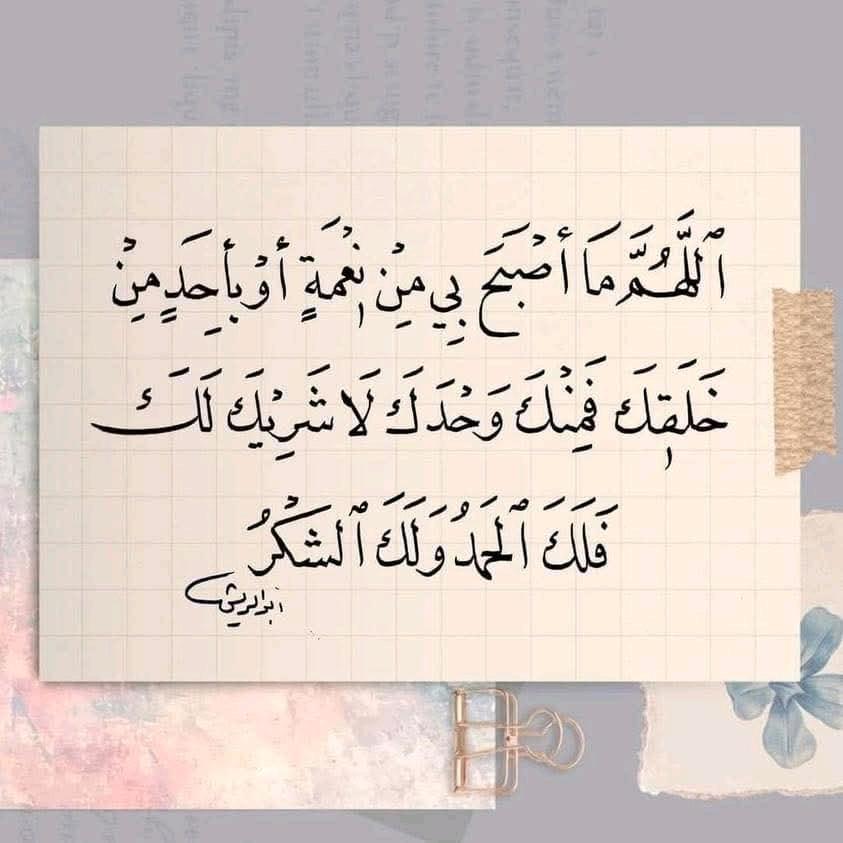 ٱللَّهُمَّ مَا أَصْبَحَ بِي مِنْ نِعْمَةٍ أَوْ بِأَحَدٍ مِنْ
خَلْقِكَ فَمِنْكَ وَحْدَكَ لَا شَرِيْكَ لَكَ
فَلَكَ ٱلْحَمْدُ وَلَكَ ٱلشُّكْرُ